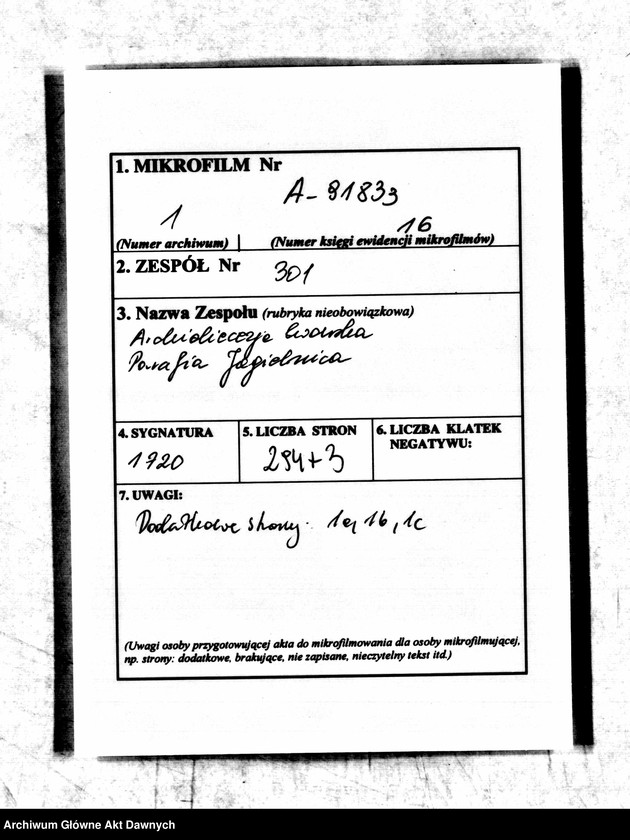 1. MIKROFILM Nr
A-91833
1
16
(Numer archiwum)
(Numer księgi ewidencji mikrofilmów)
2. ZESPÓŁ Nr
301
3. Nazwa Zespołu (rubryka nieobowiązkowa)
Archidiecezja Lwowska
Parafia Jagielnica
4. SYGNATURA
1720
5. LICZBA STRON
294+3
6. LICZBA KLATEK
NEGATYWU:
7. UWAGI:
Dodatkowe strony: 1a, 1b, 1c
(Uwagi osoby przygotowującej akta do mikrofilmowania dla osoby mikrofilmującej,
np. strony: dodatkowe, brakujące, nie zapisane, nieczytelny tekst itd.)
Archiwum Główne Akt Dawnych